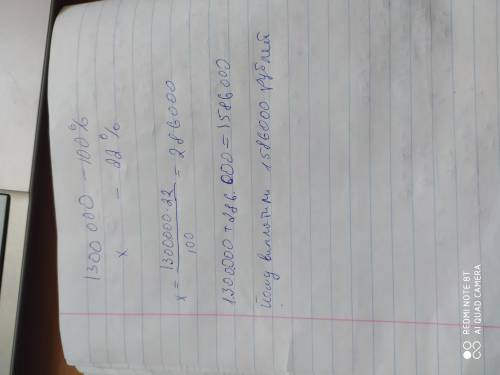 1300 000 – 100%
x – 22%
x = 1300000·22 / 100 = 286000
1300000 + 286.000 = 1586000
Йому виплатили 1586000 рублей
REDMI NOTE 8T
AI QUAD CAMERA